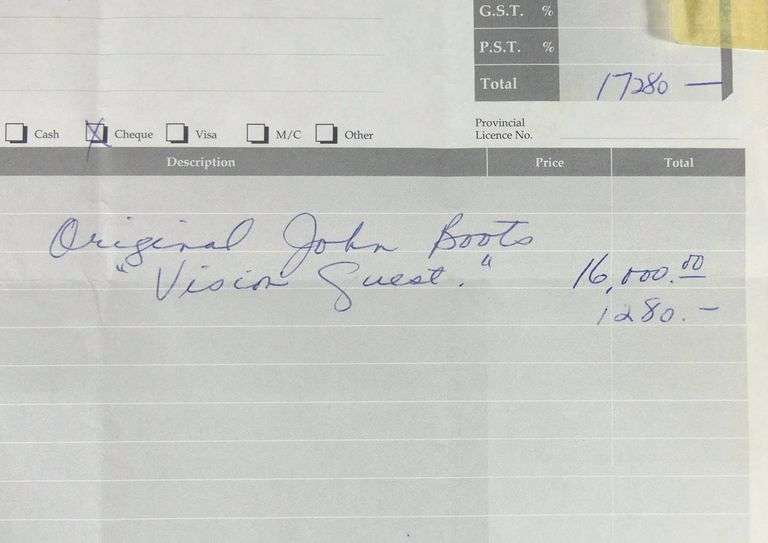 G.S.T. %
P.S.T. %
Total 17280 —
Cash Cheque Visa M/C Other
Provincial
Licence No.
Description Price Total
Original John Boots
"Vision Quest." 16,000.00
1280. —